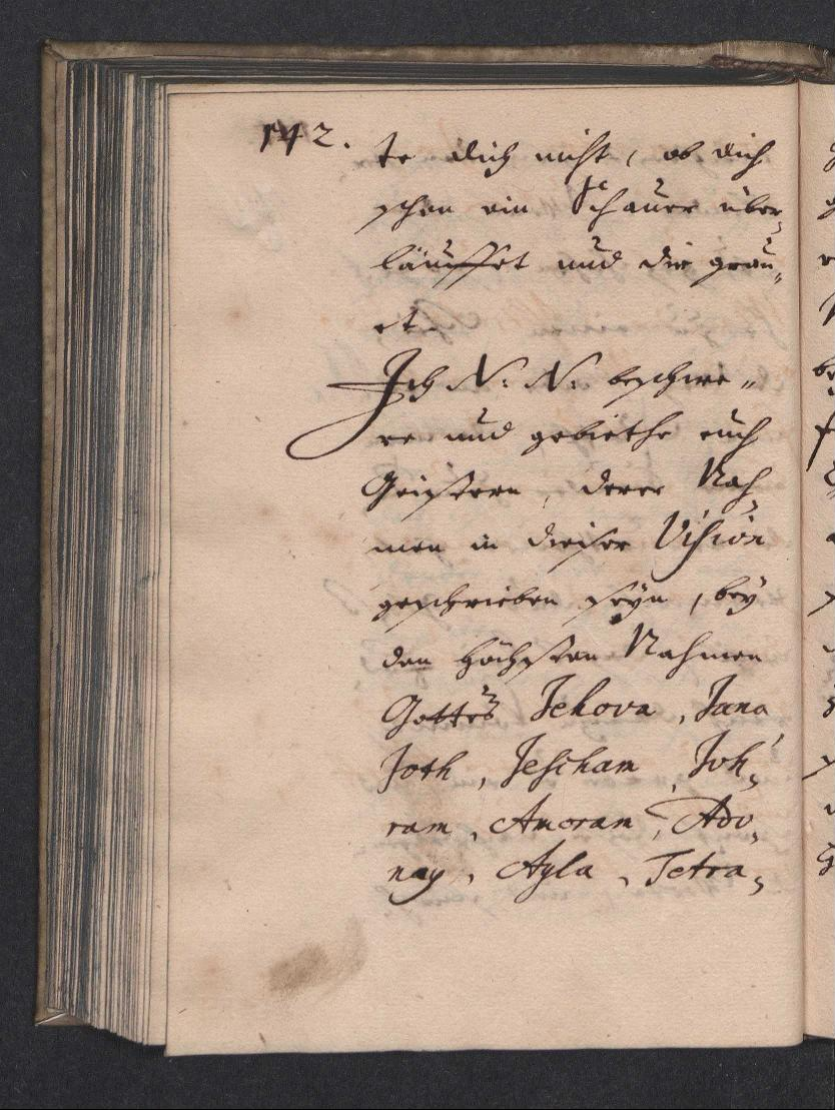 142.
te dich nicht, ob dich
schon ein Schauer über„
läuffet und dir grau„
et.
Ich N. N. beschwe„
re und gebiethe euch
Geistern, derer Nah„
men in dieser Vision
geschrieben seyn, bey
den höchsten Nahmen
Gottes Jehova, Jana
Joth, Jescham, Joh„
ram, Amoram, Ado„
nay, Agla, Tetra„